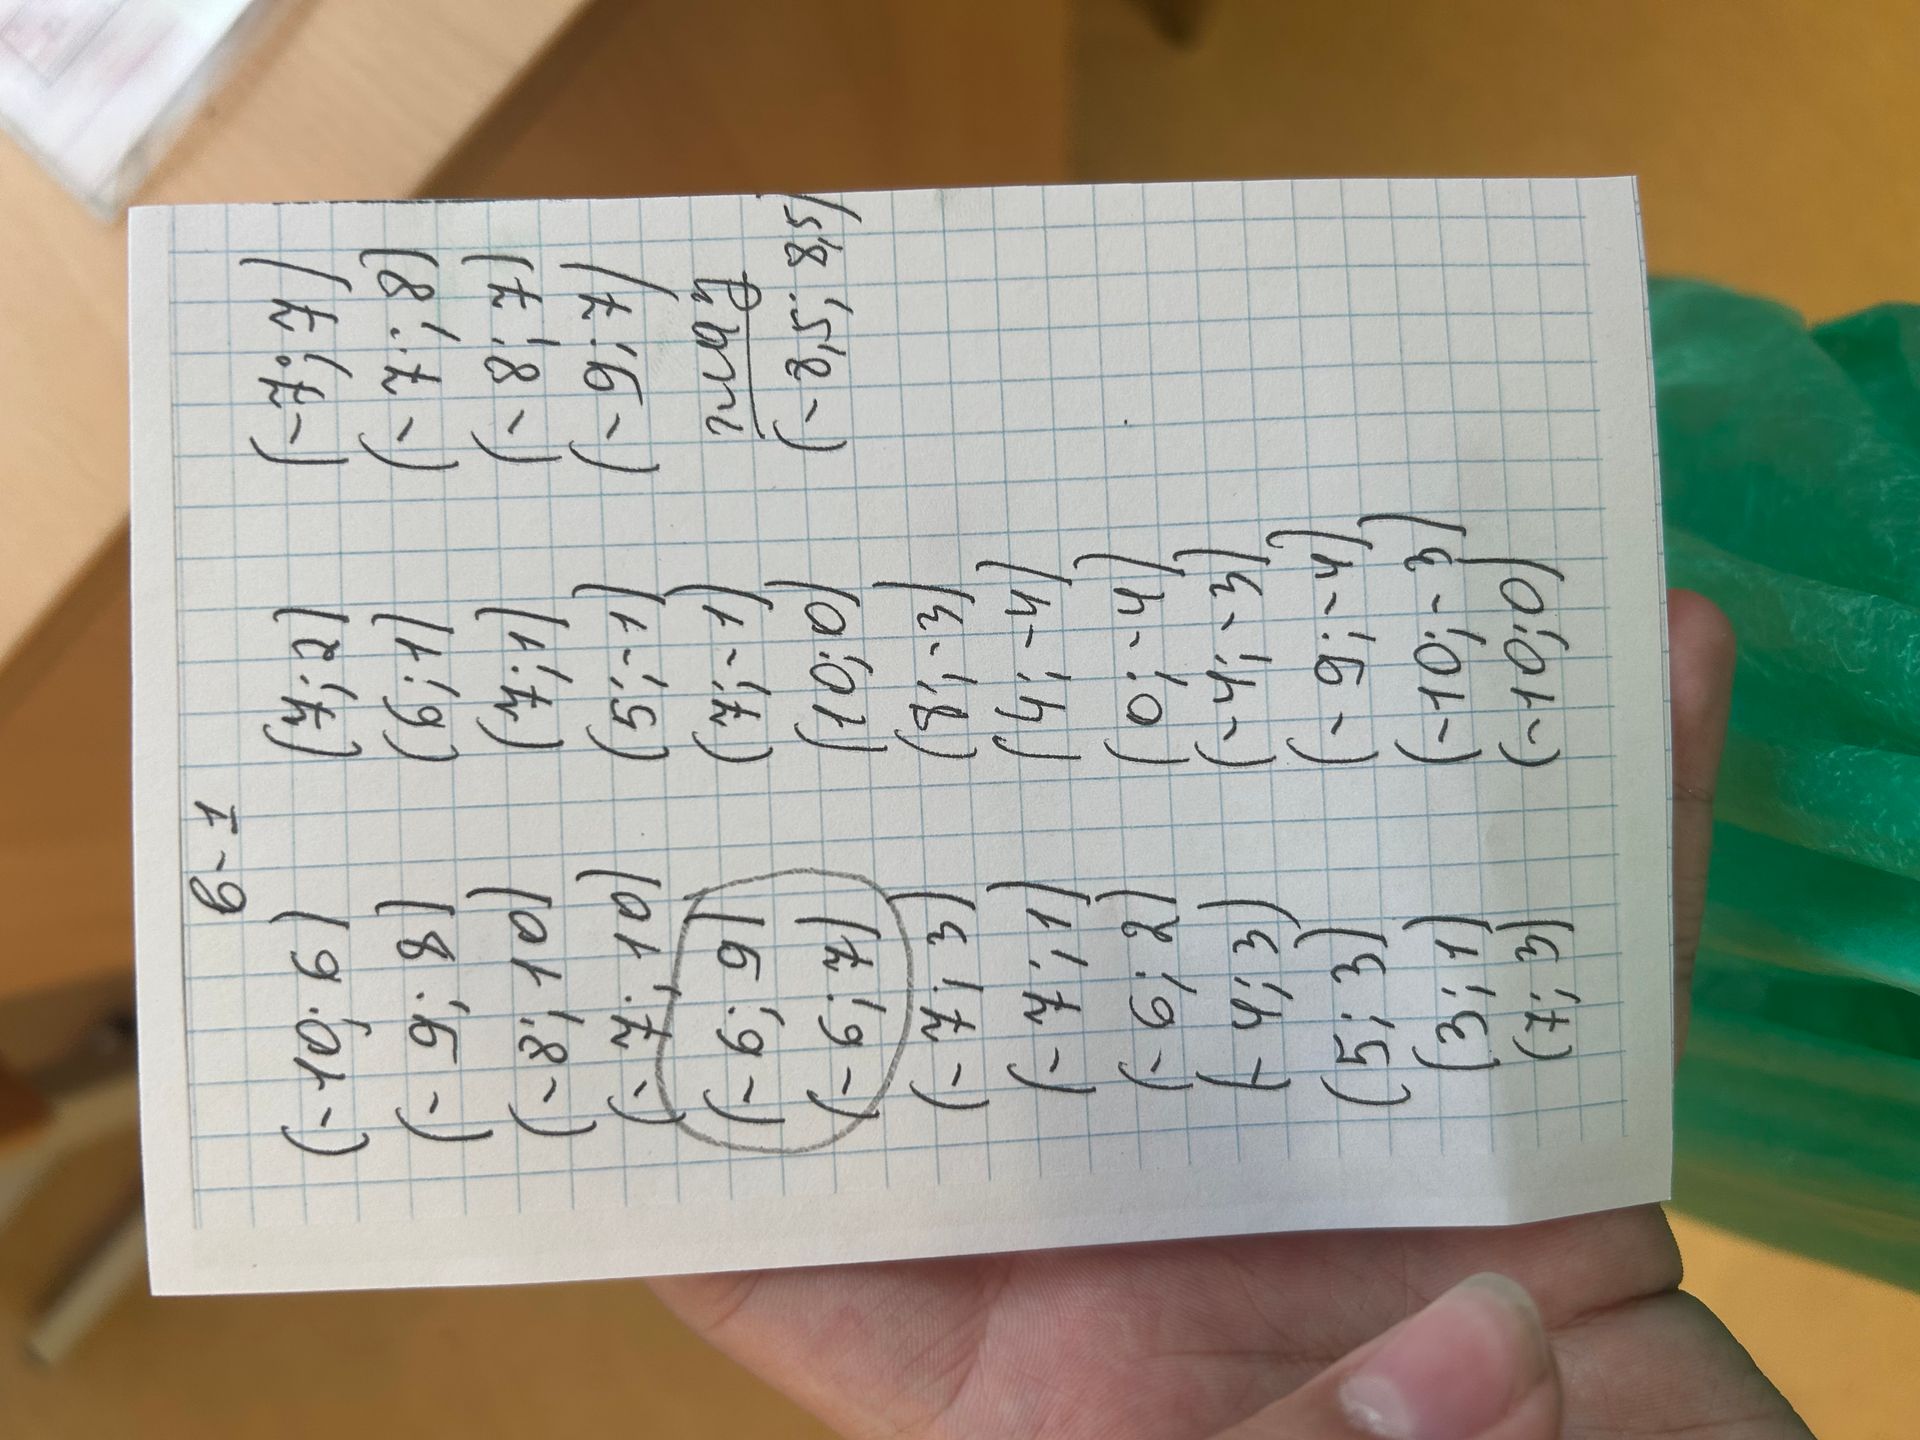 в-1
(-10; 6)
(-9; 8)
(-8; 10)
(-7; 10)
(-6; 9)
(-6; 7)
(-7; 3)
(-7; 1)
(-6; 2)
(-4; 3)
(5; 3)
(3; 1)
(7; 3)
(7; 2)
(6; 1)
(7; 1)
(5; -1)
(7; -1)
(10; 0)
(8; -3)
(4; -4)
(0; -4)
(-4; -3)
(-9; -4)
(-10; -3)
(-10; 0)
(-7; 7)
(-7; 8)
(-8; 7)
(-9; 7)
глаз
(-8,5; 8,5)